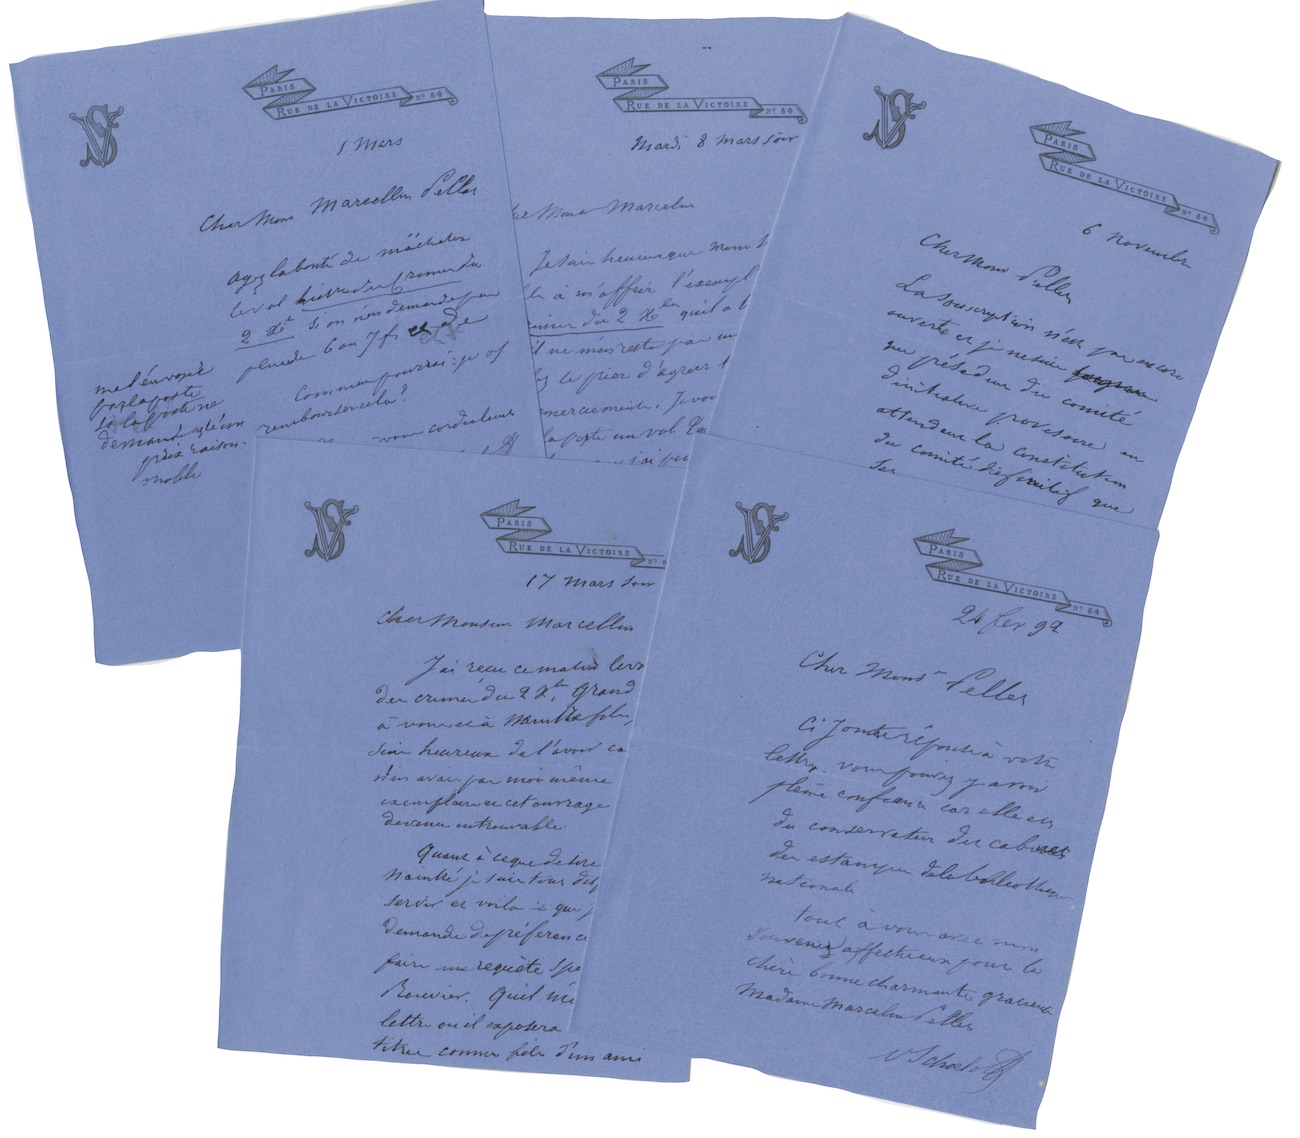 VS
PARIS
RUE DE LA VICTOIRE
N° 64
1 Mars
Cher Mons Marcellin Pellet
ayez la bonté de m'acheter
le vol histoire du crime du
2 Xbre Si on n'en demande pas
plus de 6 ou 7 fs
Comment pourrai-je
rembourser cela?
cordialement
me l'envoyer
par la poste
si la poste ne
demande qu'un
prix raison-
nable
PARIS
RUE DE LA VICTOIRE
N° 64
Mardi 8 mars soir
Mons Marcelin
Je suis heureux que Mons
à m'offrir l'exempl
du 2 Xbre qu'il a
il ne m'en reste pas un
le prier d'agréer
remerciements. Je vou
la poste un vol
VS
PARIS
RUE DE LA VICTOIRE
N° 64
6 novembre
Cher Mons Pellet
La souscription n'est pas encore
ouverte et je ne suis
que président du comité
d'initiative provisoire en
attendant la constitution
du comité définitif que
VS
PARIS
RUE DE LA VICTOIRE
N° 6
17 Mars soir
Cher Monsieur Marcellin
J'ai reçu ce matin le vo
du crime du 2 Xbre Grand
à vous et à
suis heureux de l'avoir ca
n'en avais pas moi même
exemplaire cet ouvrage
devenu introuvable
Quant à ce que desire
je suis tout disp
servir et voila ce que
demande de préférence
faire une requête spe
Rouvier. Qu'il m'é
lettre où il exposera
titres comme fils d'un ami
VS
PARIS
RUE DE LA VICTOIRE
N° 64
24 fev 92
Cher Monsr Pellet
Ci jointe réponse à votre
lettre. vous pouvez y avoir
pleine confiance car elle est
du conservateur du cabinet
des estampes de la bibliotheque
nationale
tout à vous avec mon
souvenir affectueux pour la
chère bonne charmante gracieuse
Madame Marcelin Pellet
V Schœlcher